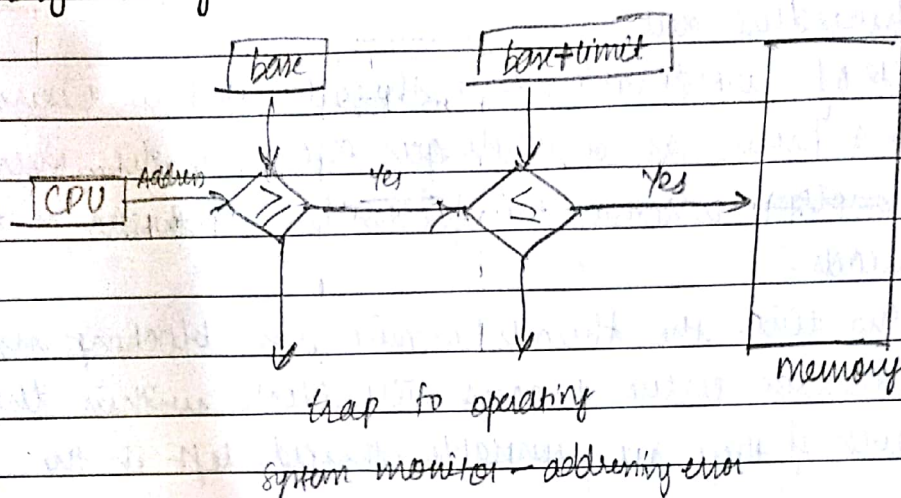 base
base+limit
CPU
Address
≥
Yes
≤
Yes
memory
trap to operating
system monitor - addressing error